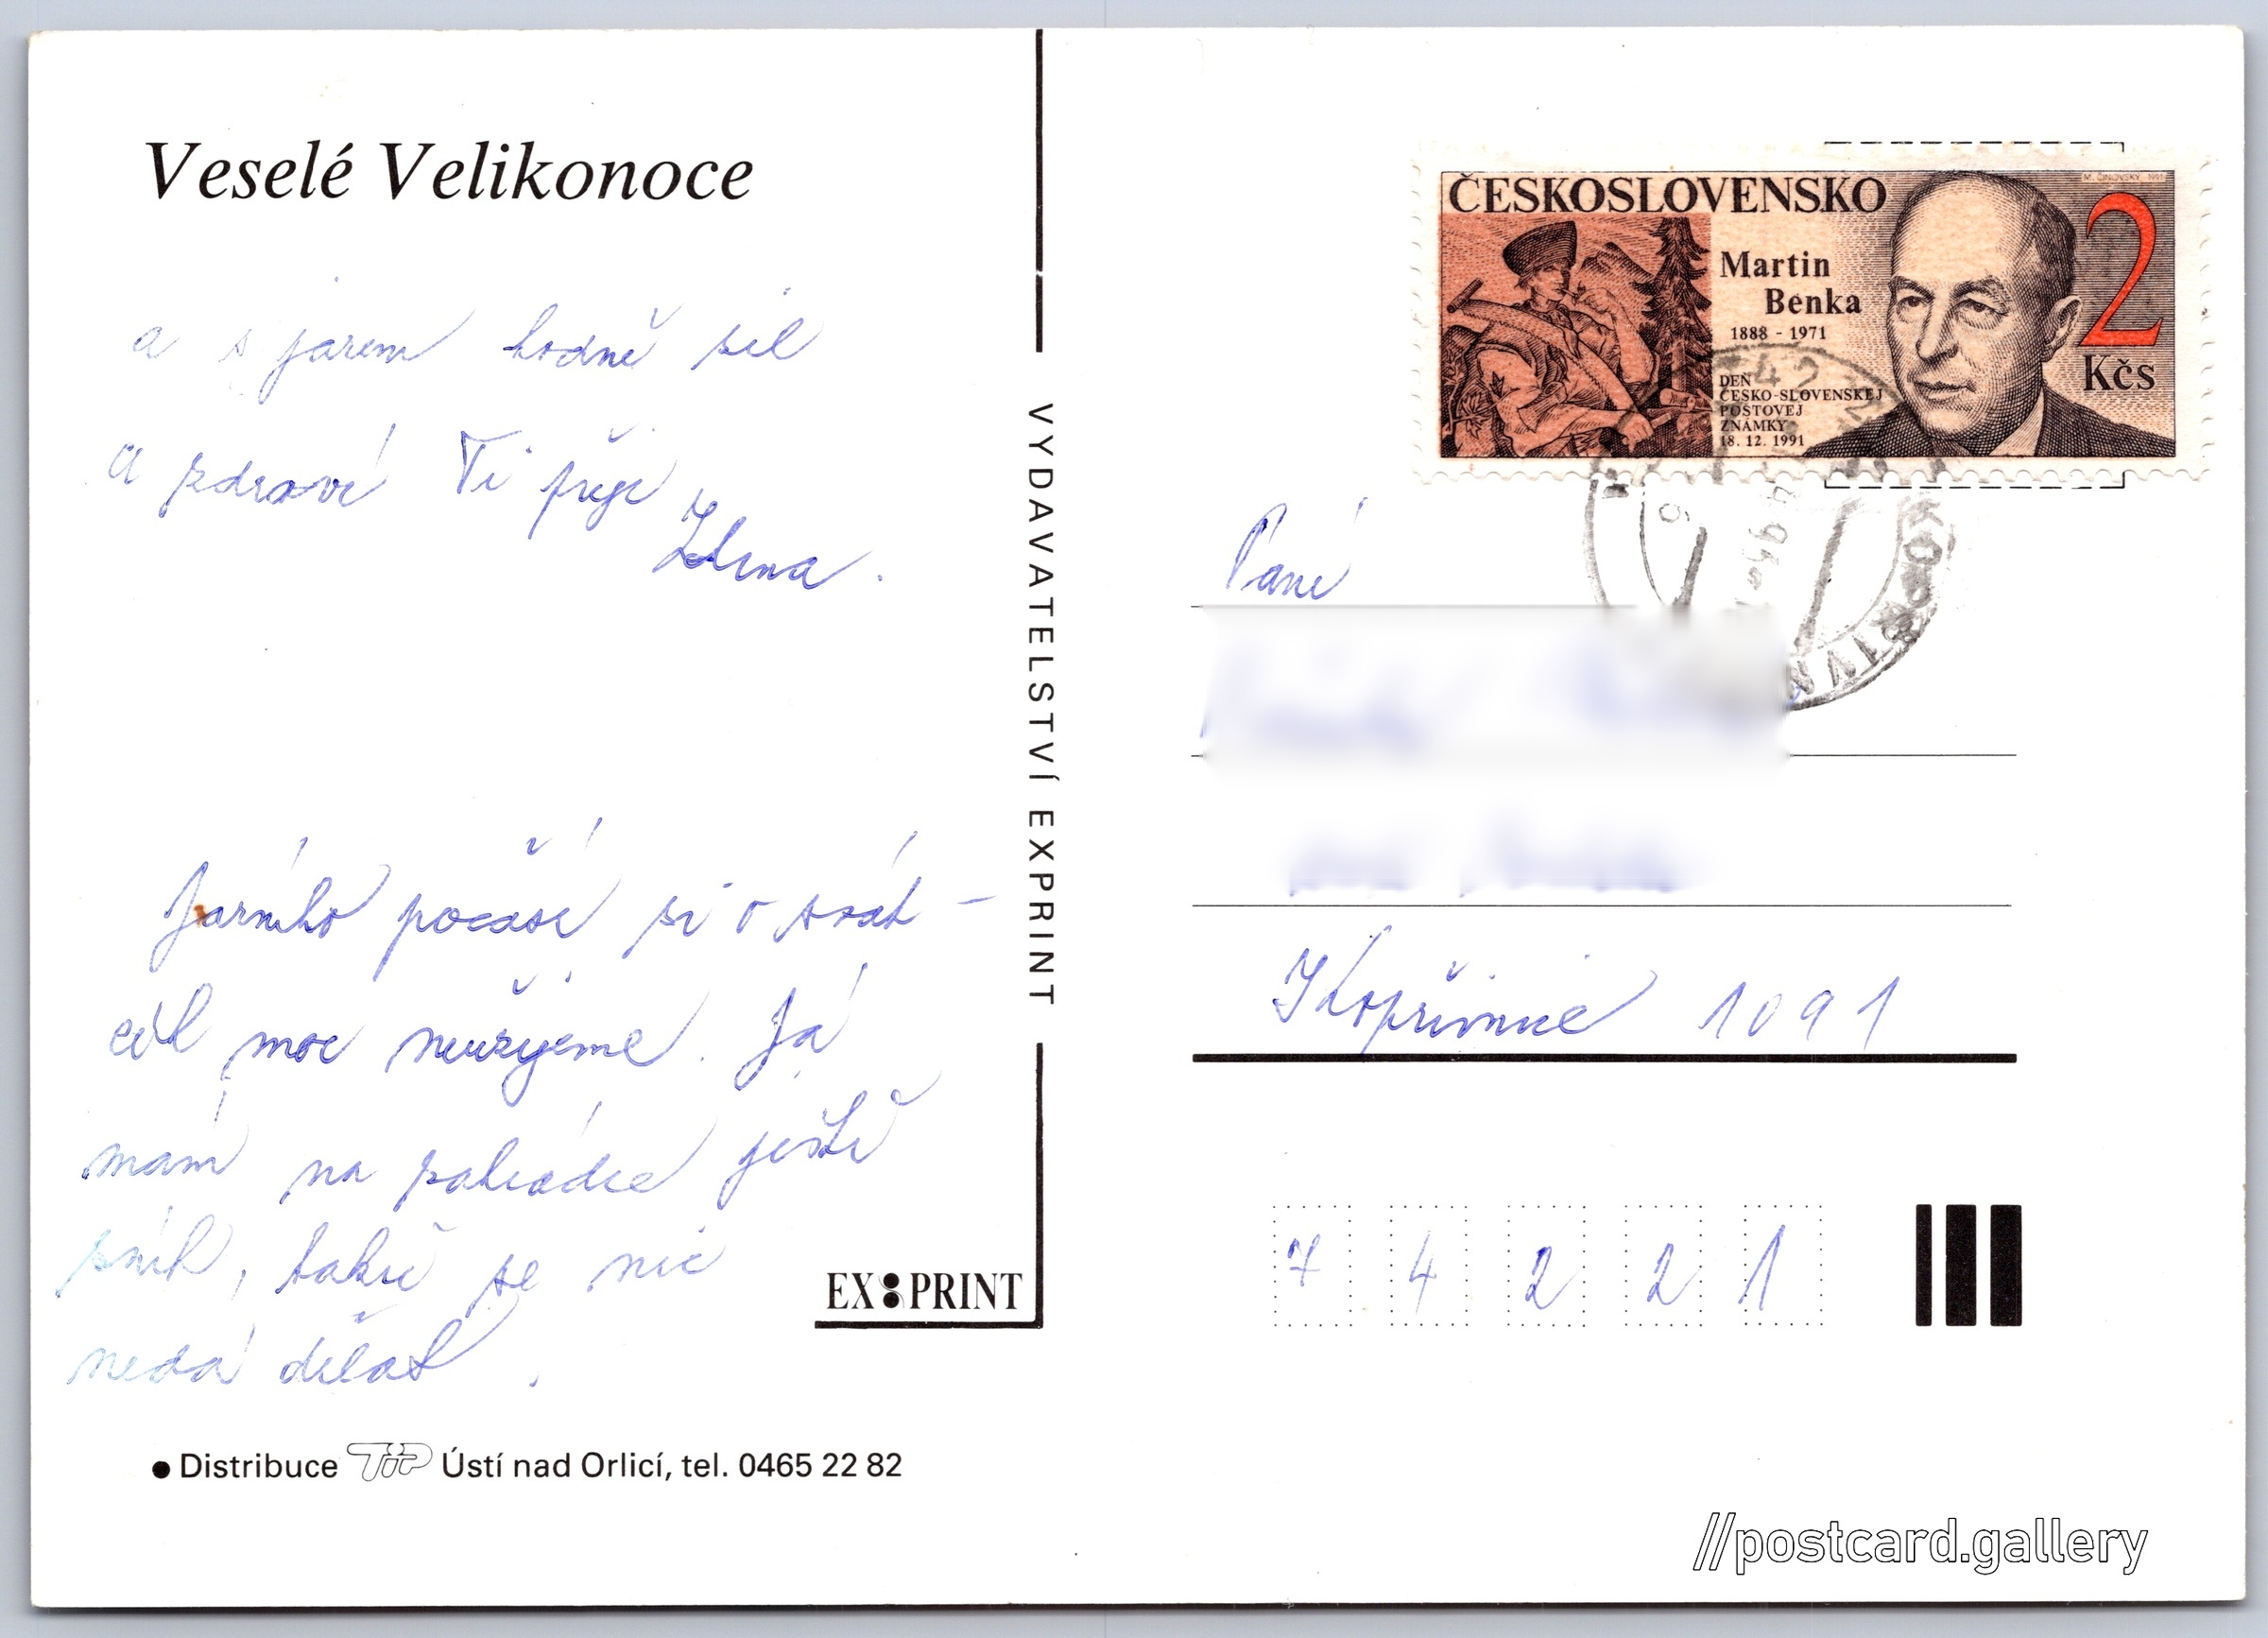 Veselé Velikonoce
a s jarem hodně sil
a zdraví Ti přeje
Zdena.
Jarního počasí si o svát-
cích moc neužijeme. Já
mám na zahrádce ještě
sníh, takže se nic
nedá dělat.
● Distribuce TIP Ústí nad Orlicí, tel. 0465 22 82
VYDAVATELSTVÍ EXPRINT
EXPRINT
ČESKOSLOVENSKO
Martin
Benka
1888 - 1971
DEŇ
ČESKO-SLOVENSKEJ
POŠTOVEJ
ZNÁMKY
18. 12. 1991
2
Kčs
Paní
Kopřivnice 1091
7 4 2 2 1
//postcard.gallery